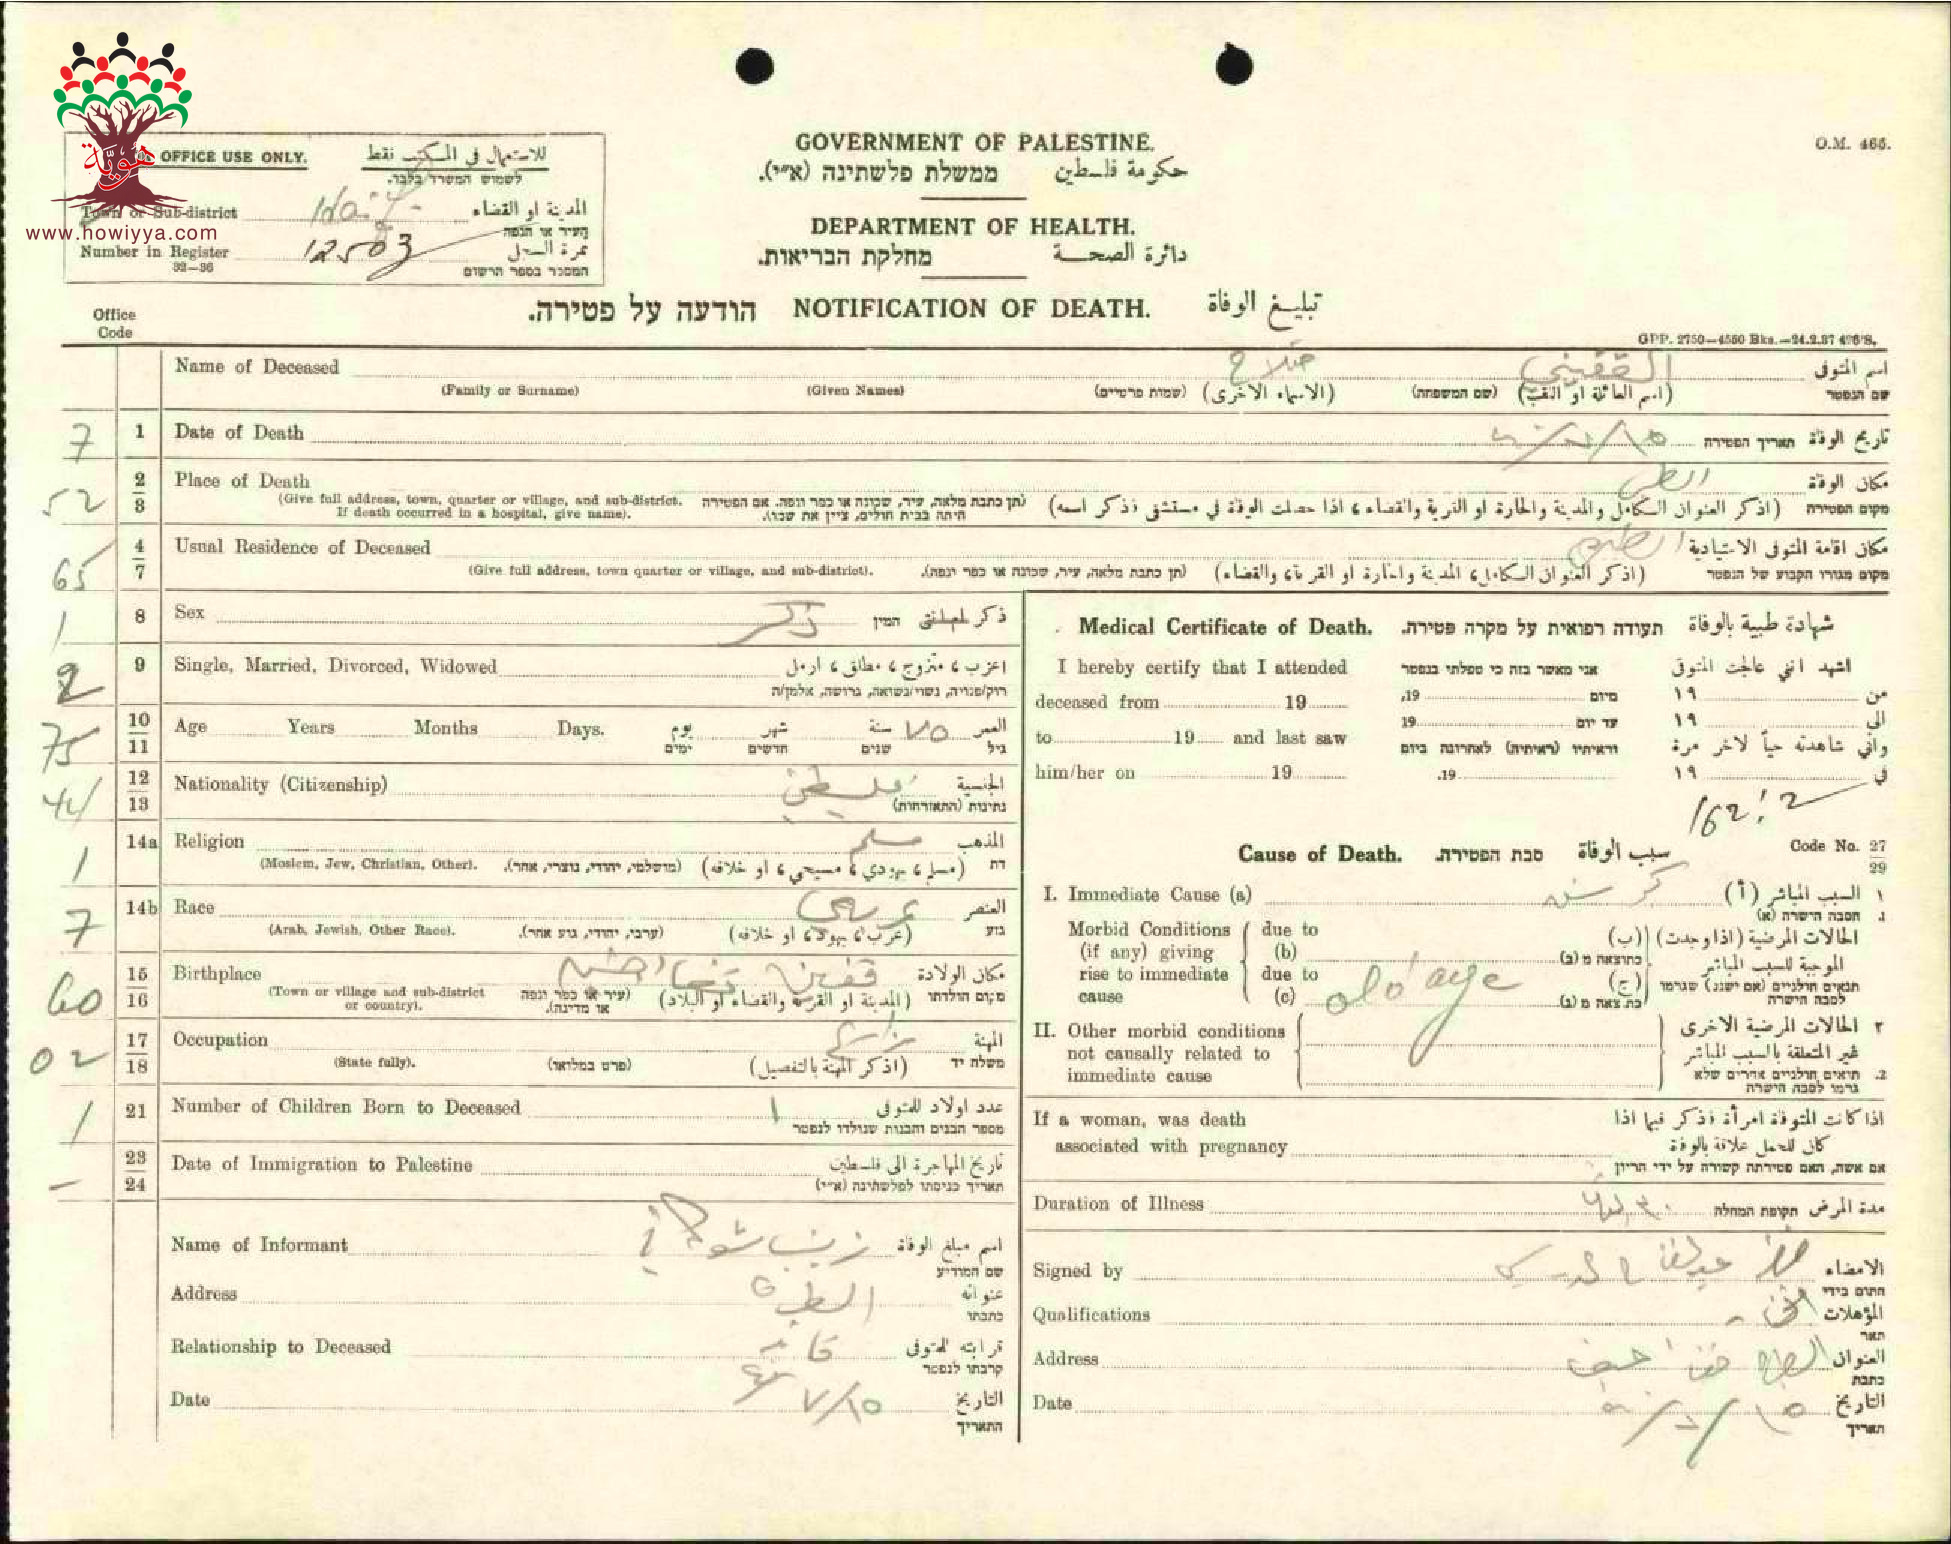 GOVERNMENT OF PALESTINE.
O.M. 465.
حكومة فلسطين ממשלת פלשתינה (א״י).
DEPARTMENT OF HEALTH.
دائرة الصحة מחלקת הבריאות.
هوية
www.howiyya.com
OFFICE USE ONLY. للاستعمال في المكتب فقط
לשמוש המשרד בלבד.
Town or Sub-district Haifa المدينة او القضاء
העיר או הנפה
Number in Register 12503 نمرة السجل
32—36 המספר בספר הרשום
תبليغ الوفاة NOTIFICATION OF DEATH. הודעה על פטירה.
Office
Code
GPP. 2750—4550 Bks.—24.2.37
Name of Deceased صلاح القفيني اسم المتوفى
(Family or Surname) (Given Names) (שמות פרטיים) (الاسماء الاخرى) (שם המשפחה) (اسم العائلة او اللقب) שם הנפטר
7 1 Date of Death ١٥/٧/٤٠ تاريخ الوفاة תאריך הפטירה
52 2 3 Place of Death مكان الوفاة
(Give full address, town, quarter or village, and sub-district. If death occurred in a hospital, give name).
(תן כתבת מלאה, עיר, שכונה או כפר ונפה. אם הפטירה היתה בבית חולים, ציין את שמו).
(اذكر العنوان الكامل والمدينة والحارة او القرية والقضاء، اذا حصلت الوفاة في مستشفى فذكر اسمه) מקום הפטירה
65 4 7 Usual Residence of Deceased مكان اقامة المتوفى الاعتيادية
(Give full address, town quarter or village, and sub-district). (תן כתבת מלאה, עיר, שכונה או כפר ונפה). (اذكر العنوان الكامل، المدينة والحارة او القرية، والقضاء) מקום מגורו הקבוע של הנפטר
1 8 Sex ذكر המין ذكر او انثى
2 9 Single, Married, Divorced, Widowed اعزب، متزوج، مطلق، ارمل
רוק/פנויה, נשוי/נשואה, גרוש/ה, אלמן/ה
75 10 11 Age Years Months Days. يوم شهر سنة ٧٥ العمر
ימים חדשים שנים גיל
44 12 13 Nationality (Citizenship) فلسطيني الجنسية
נתינות (התאזרחות)
1 14a Religion مسلم المذهب
(Moslem, Jew, Christian, Other). (מושלמי, יהודי, נוצרי, אחר). (مسلم، يهودي، مسيحي، او خلافه) דת
7 14b Race عربي العنصر
(Arab, Jewish, Other Race). (ערבי, יהודי, גזע אחר). (عرب، يهود، او خلافه) גזע
60 15 16 Birthplace قفين مكان الولادة
(Town or village and sub-district or country). (עיר או כפר ונפה או מדינה). (المدينة او القرية والقضاء او البلاد) מקום הולדתו
02 17 18 Occupation المهنة
(State fully). (פרט במלואו) (اذكر المهنة بالتفصيل) משלח יד
1 21 Number of Children Born to Deceased ١ عدد اولاد المتوفى
מספר הבנים והבנות שנולדו לנפטר
— 23 24 Date of Immigration to Palestine تاريخ المهاجرة الى فلسطين
תאריך כניסתו לפלשתינה (א״י)
Name of Informant زينب اسم مبلغ الوفاة
שם המודיע
Address عنوانه
כתבתו
Relationship to Deceased قرابته للمتوفى
קרבתו לנפטר
Date ١٥/٧ التاريخ
התאריך
Medical Certificate of Death. תעודה רפואית על מקרה פטירה. شهادة طبية بالوفاة
I hereby certify that I attended אני מאשר בזה כי טפלתי בנפטר اشهد انني عالجت المتوفى
deceased from 19 מיום 19, من ١٩
to 19 and last saw עד יום 19 الى ١٩
וראיתיו (ראיתיה) לאחרונה ביום واني شاهدته حياً لاخر مرة
him/her on 19 19. في ١٩
162:2
Cause of Death. סבת הפטירה. سبب الوفاة Code No. 27 29
I. Immediate Cause (a) كبر سن (أ) السبب المباشر ١
הסבה הישרה (א) .1
Morbid Conditions (if any) giving rise to immediate cause
due to (b) כתוצאה מ (ב) (ب)
due to (c) old age כתוצאה מ (ג) (ج)
الحالات المرضية (اذا وجدت) الموجبة للسبب المباشر
תנאים חולניים (אם ישנם) שגרמו לסבה הישרה
II. Other morbid conditions not causally related to immediate cause
٢ الحالات المرضية الاخرى غير المتعلقة بالسبب المباشر
.2 תנאים חולניים אחרים שלא גרמו לסבה הישרה
If a woman, was death associated with pregnancy
اذا كانت المتوفاة امرأة فذكر فيما اذا كان للحمل علاقة بالوفاة
אם אשה, האם פטירתה קשורה על ידי הריון
Duration of Illness תקופת המחלה مدة المرض
Signed by الامضاء
חתום בידי
Qualifications المؤهلات
תאר
Address العنوان
כתבת
Date ١٥/٧/٤٠ التاريخ
תאריך